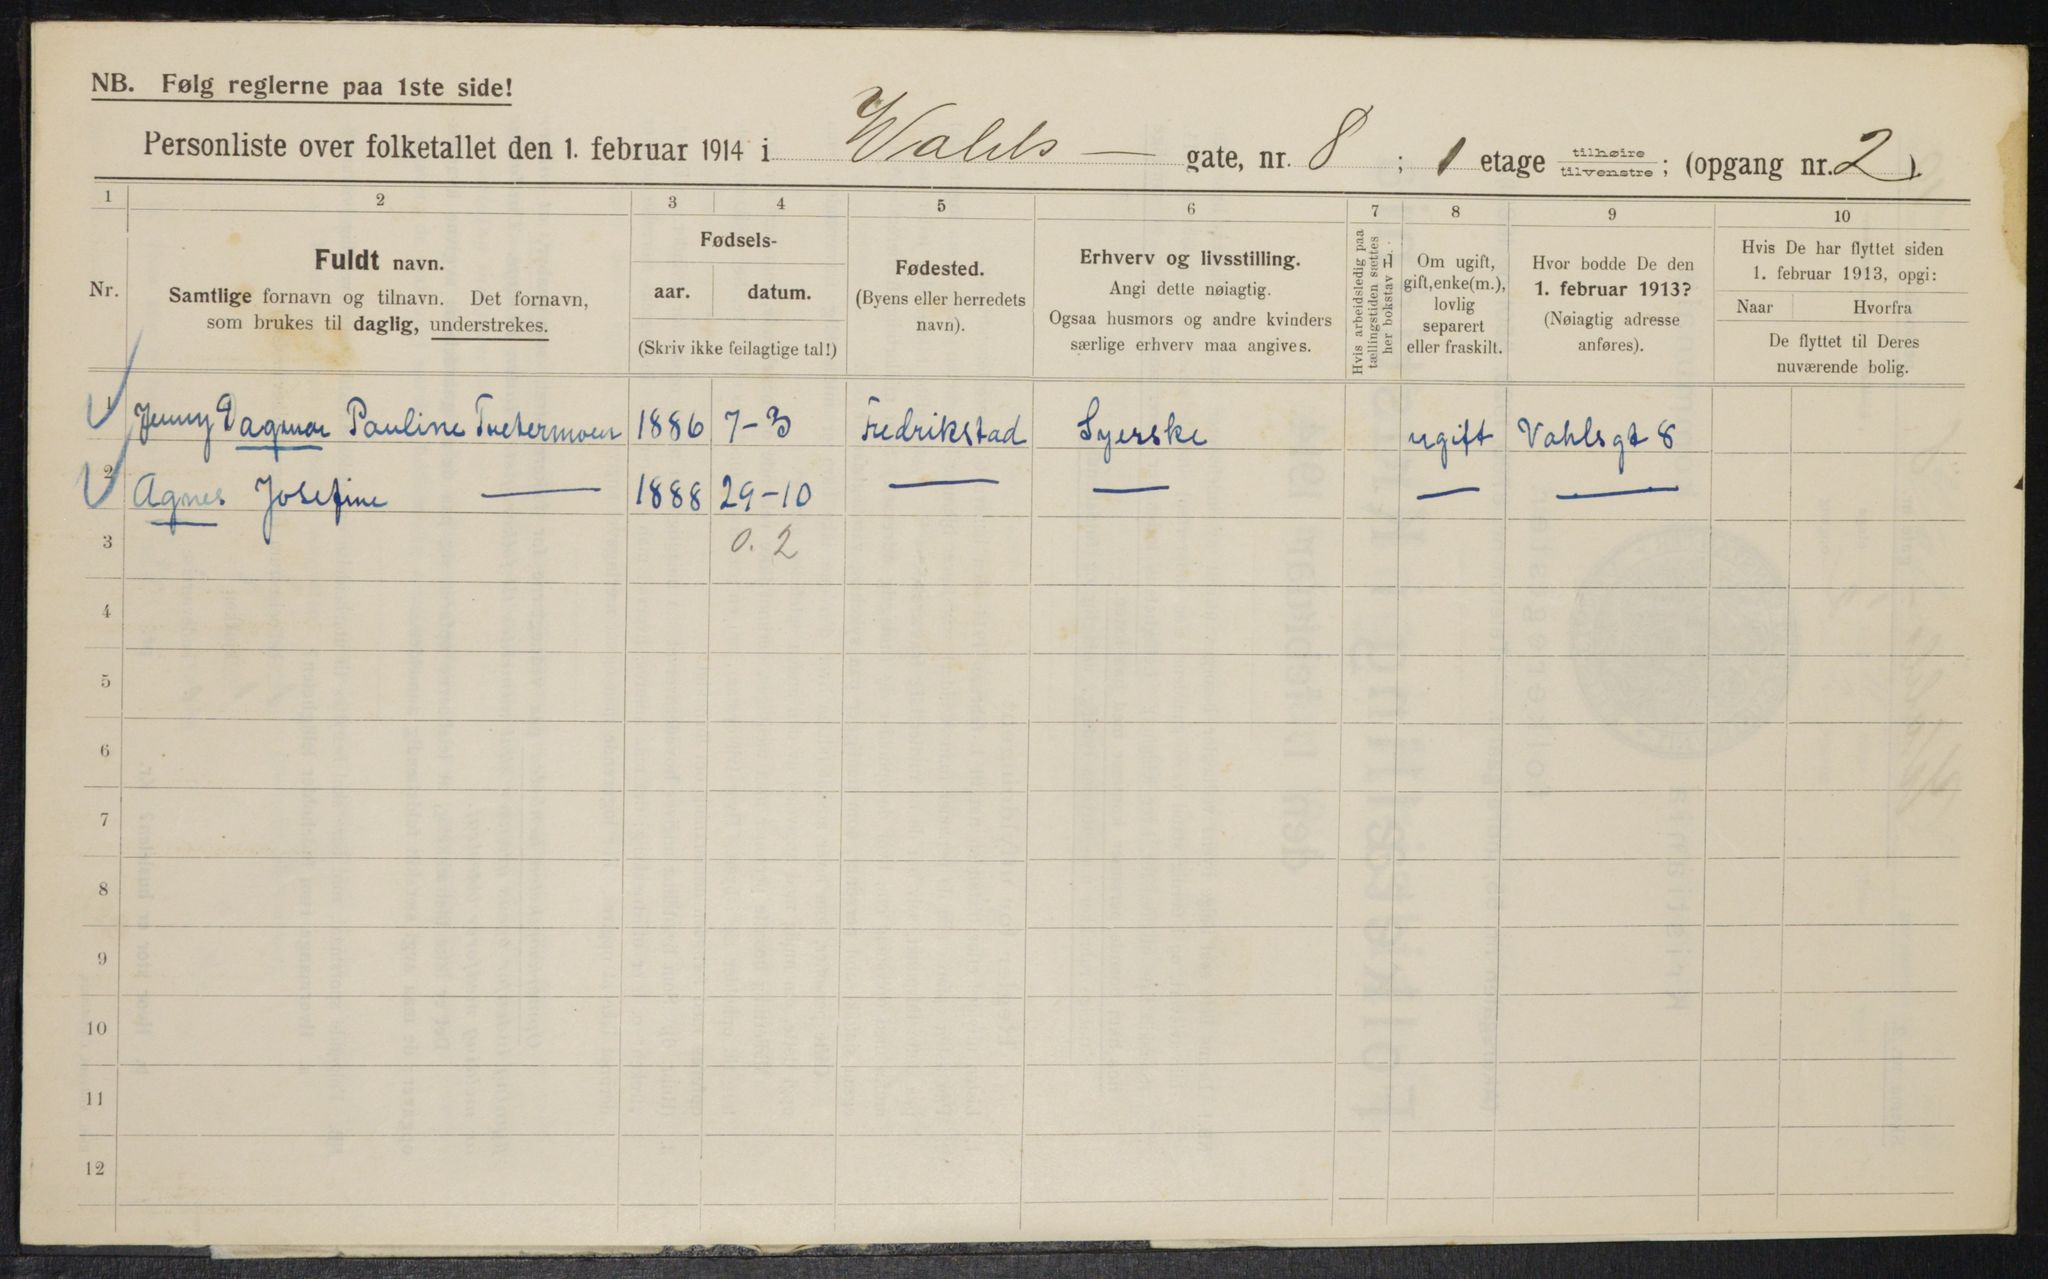 NB. Følg reglerne paa 1ste side!
Personliste over folketallet den 1. februar 1914 i Wahls — gate, nr. 8 ; 1 etage tilhøire/tilvenstre ; (opgang nr. 2).
1 2 3 4 5 6 7 8 9 10
Nr.
Fuldt navn.
Samtlige fornavn og tilnavn. Det fornavn,
som brukes til daglig, understrekes.
Fødsels-
aar. datum.
(Skriv ikke feilagtige tal!)
Fødested.
(Byens eller herredets
navn).
Erhverv og livsstilling.
Angi dette nøiagtig.
Ogsaa husmors og andre kvinders
særlige erhverv maa angives.
Hvis arbeidsledig paa
tællingstiden sættes
her bokstav L.
Om ugift,
gift, enke(m.),
lovlig
separert
eller fraskilt.
Hvor bodde De den
1. februar 1913?
(Nøiagtig adresse
anføres).
Hvis De har flyttet siden
1. februar 1913, opgi:
Naar Hvorfra
De flyttet til Deres
nuværende bolig.
1 Jenny Dagmar Pauline 1886 7-3 Fredrikstad Syerske ugift Vahlsgt 8
2 Agnes Josefine — 1888 29-10 — — — —
3 0. 2
4
5
6
7
8
9
10
11
12